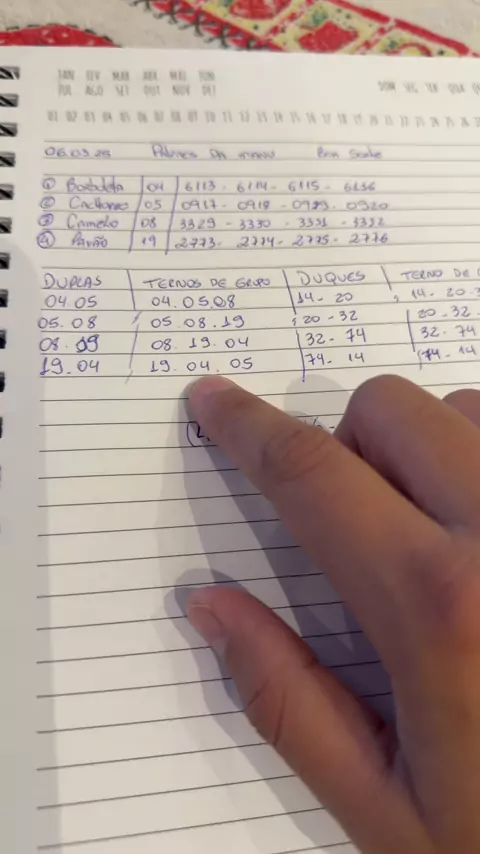 JAN FEV MAR ABR MAI JUN
JUL AGO SET OUT NOV DEZ
DOM SEG TER QUA QU
01 02 03 04 05 06 07 08 09 10 11 12 13 14 15 16 17 18 19 20 21 22 23 24 25 26 27 28
06.03.25 Boa Sorte
① Borboleta 04 6113 - 6114 - 6115 - 6116
② Cachorro 05 0917 - 0918 - 0919 - 0920
③ Camelo 08 3329 - 3330 - 3331 - 3332
④ Pavão 19 2773 - 2774 - 2775 - 2776
DUPLAS TERNOS DE GRUPO DUQUES TERNO DE
04.05 04.05.08 14 - 20 14 - 20 - 3
05.08 05.08.19 20 - 32 20 - 32 -
08.19 08.19.04 32 - 74 32 - 74
19.04 19.04.05 74 - 14 74 - 14